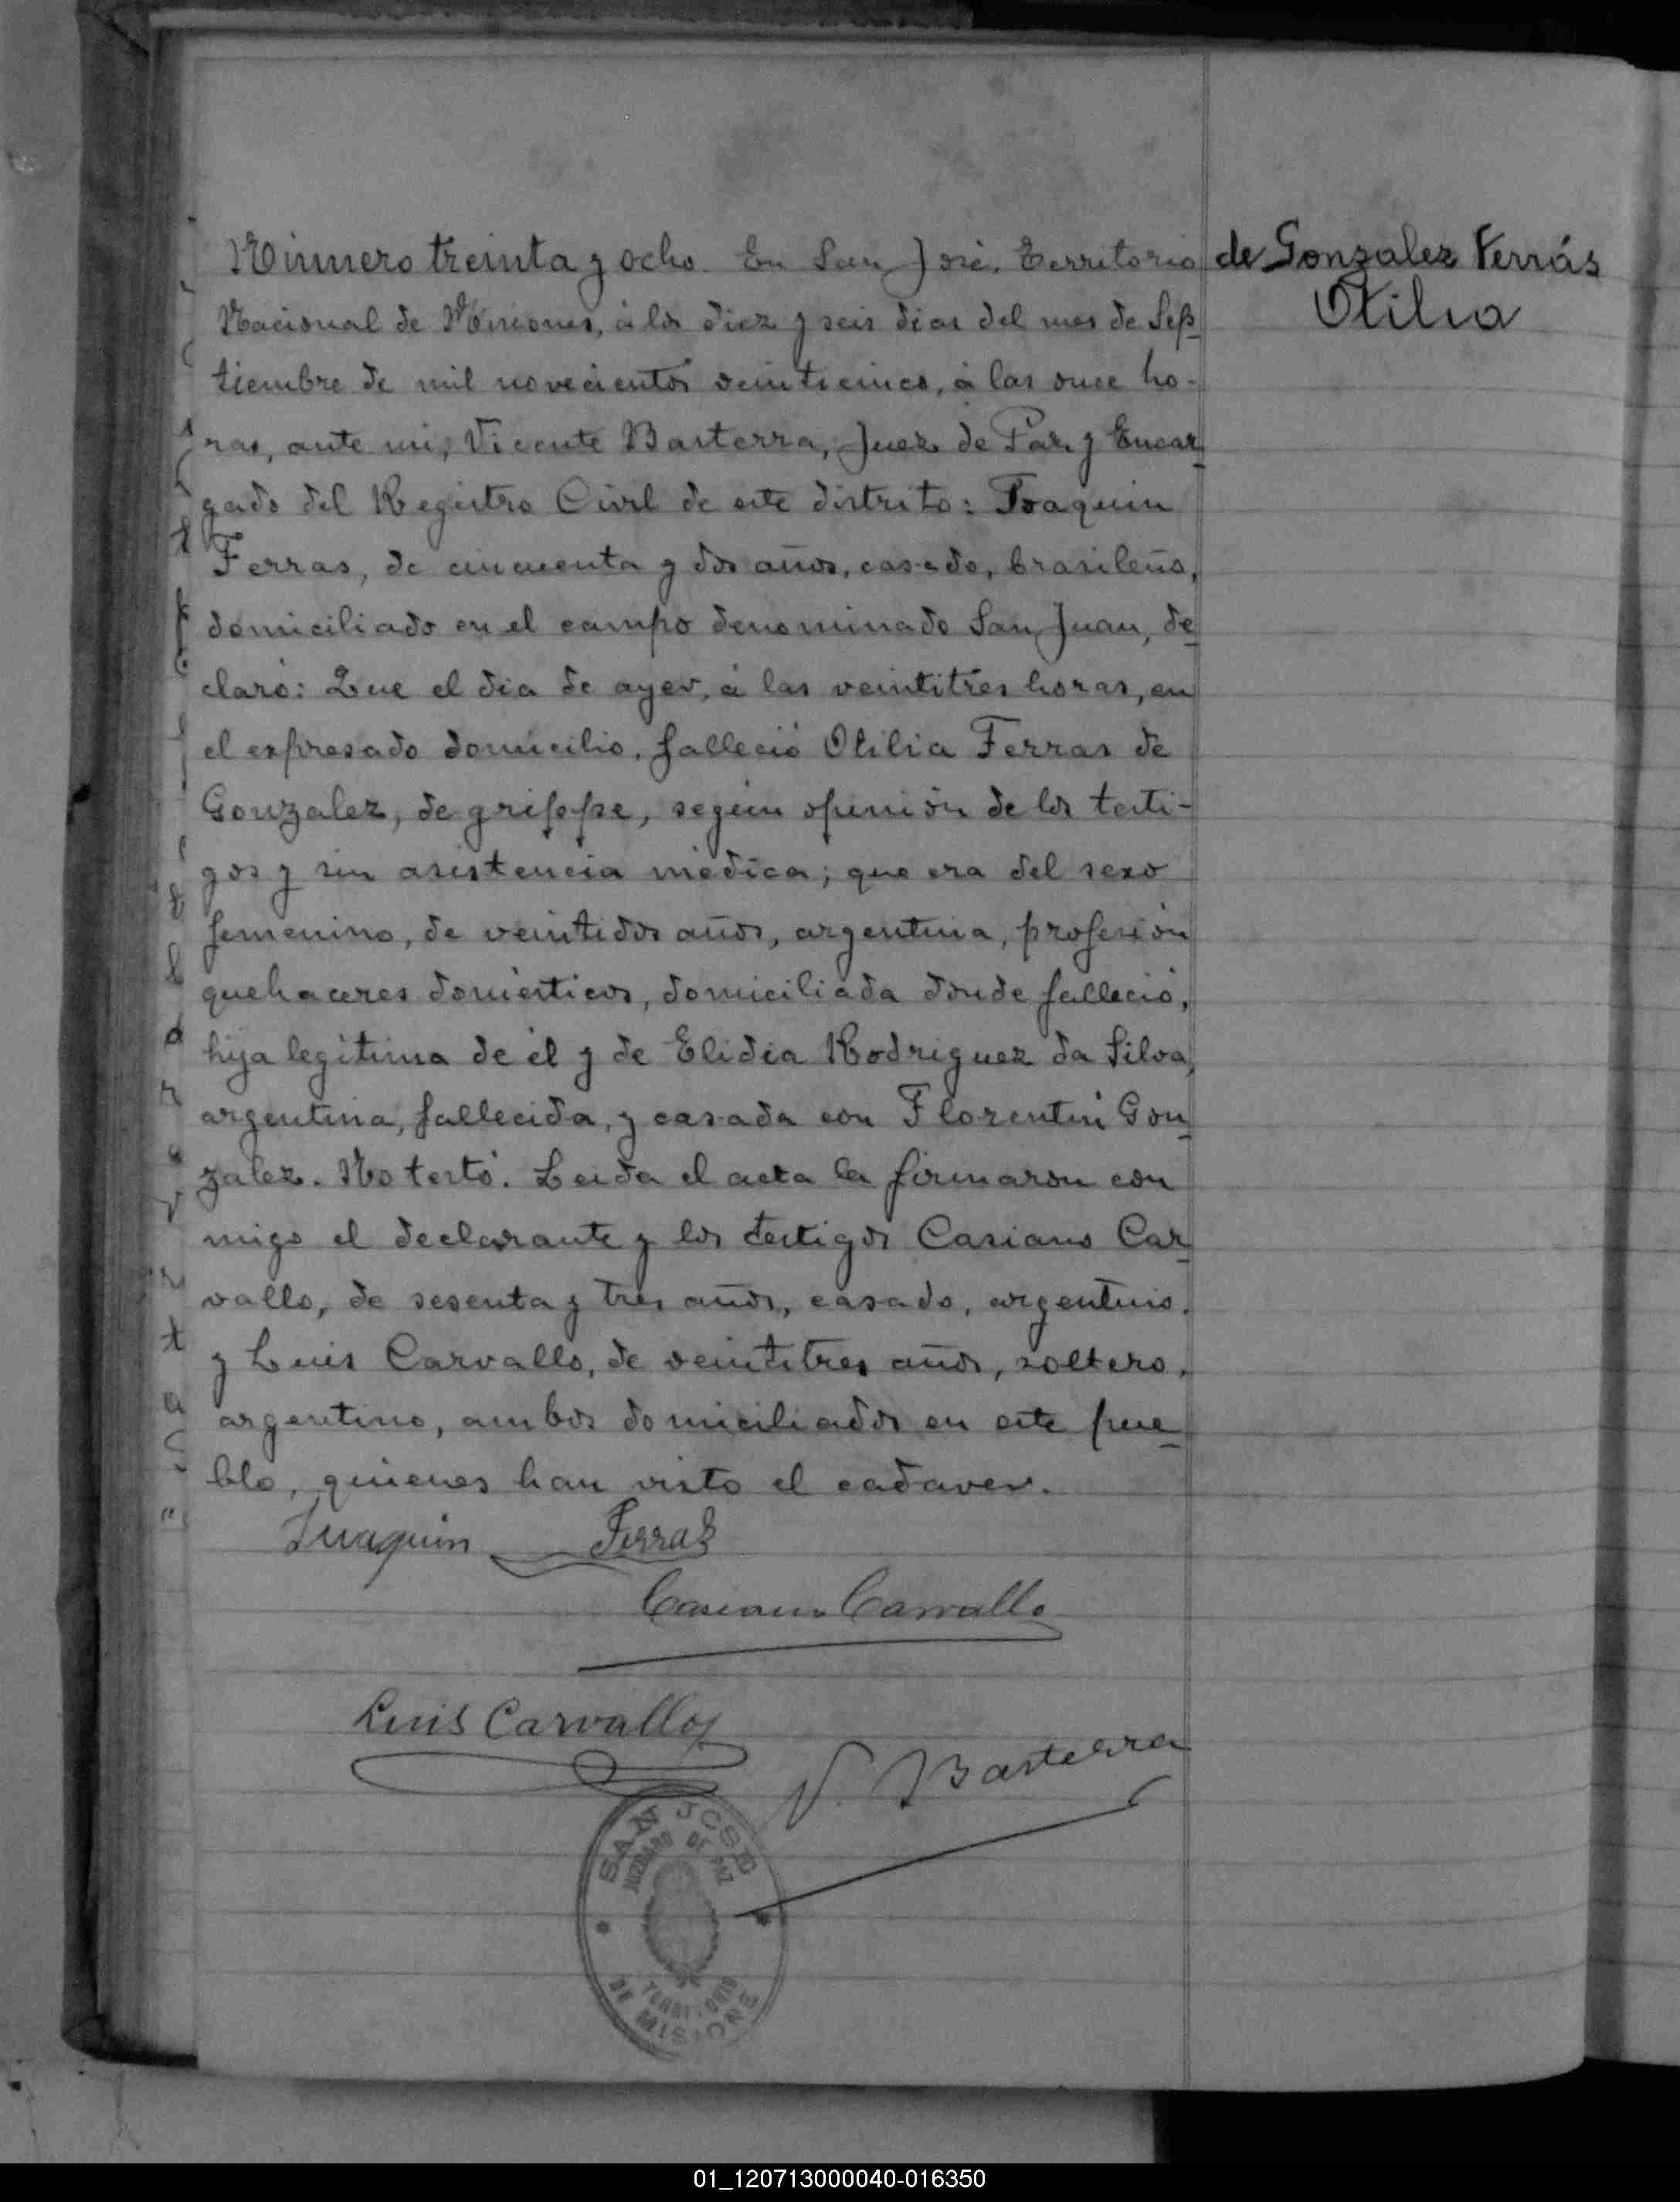 Número treinta y ocho. En San José, Territorio
de Gonzalez Ferrás
Otilia
Nacional de Misiones, à los diez y seis dias del mes de Sep
tiembre de mil novecientos veinticinco, à las once ho-
ras, ante mi, Vicente Basterra, Juez de Paz y Encar
gado del Registro Civil de este distrito: Joaquin
Ferras, de cincuenta y dos años, casado, brasileño,
domiciliado en el campo denominado San Juan, de
claró: Que el dia de ayer, à las veintitrés horas, en
el expresado domicilio, falleció Otilia Ferras de
Gonzalez, de grippe, según opinión de los testi-
gos y sin asistencia médica; que era del sexo
femenino, de veintidos años, argentina, profesión
quehaceres domésticos, domiciliada donde falleció,
hija legítima de él y de Elidia Rodriguez da Silva,
argentina, fallecida, y casada con Florentin Gon
zalez. No testó. Leida el acta la firmaron con
migo el declarante y los testigos Casiano Car
vallo, de sesenta y tres años, casado, argentino,
y Luis Carvallo, de veintitres años, soltero,
argentino, ambos domiciliados en este pue
blo, quienes han visto el cadaver.
Juaquin Ferras
Casiano Carvallo
Luis Carvallo
V. Basterra
SAN JOSE
JUZGADO DE PAZ
TERRITORIO
DE MISIONES
01_120713000040-016350